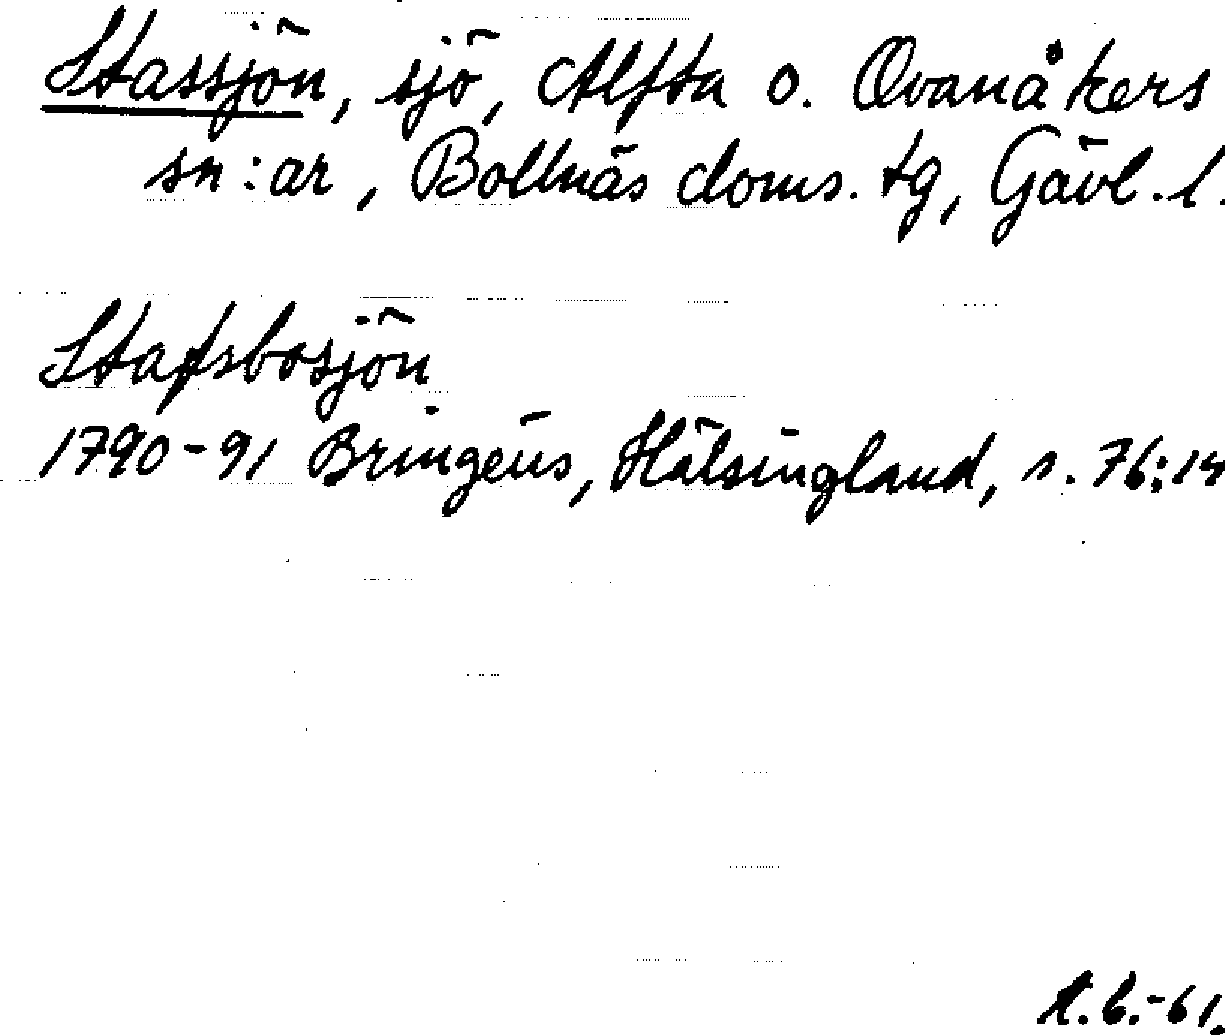 Stassjön, sjö, Alfta o. Ovanåkers
sn:ar, Bollnäs doms. tg, Gävl. l.
Stafsbosjön
1790-91 Bringéus, Hälsingland, s. 76:14
t.b.-61.